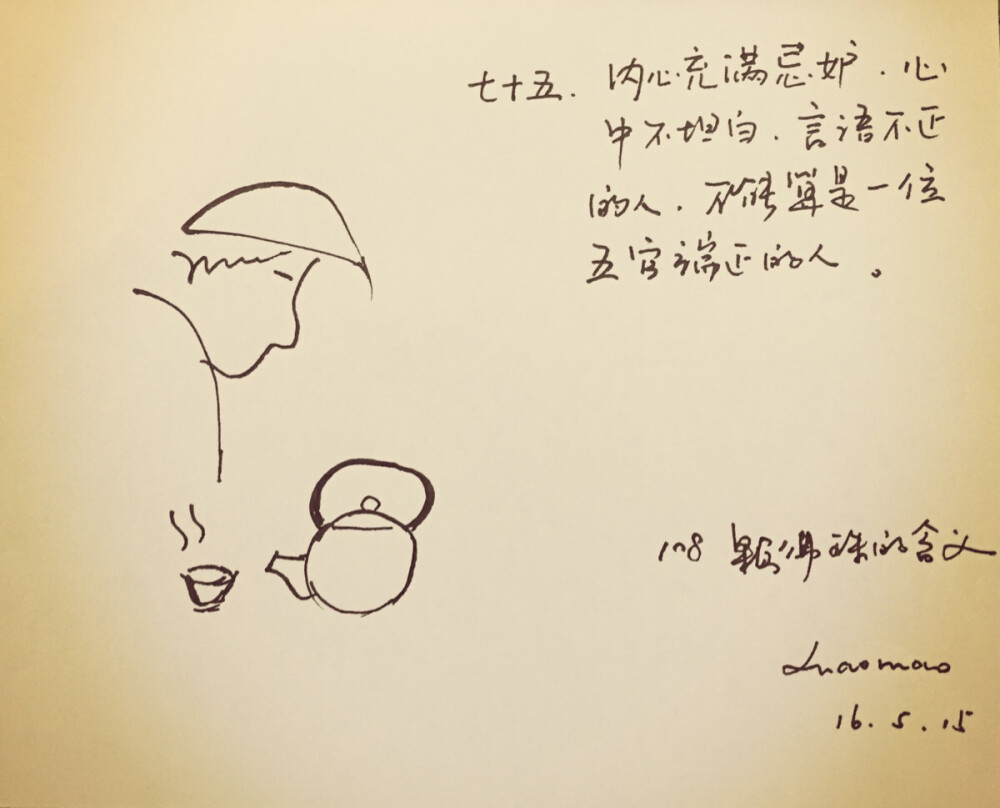 七十五. 内心充满忌妒. 心
中不坦白. 言语不正
的人. 不能算是一位
五官端正的人。
108 颗佛珠的含义
16.5.15